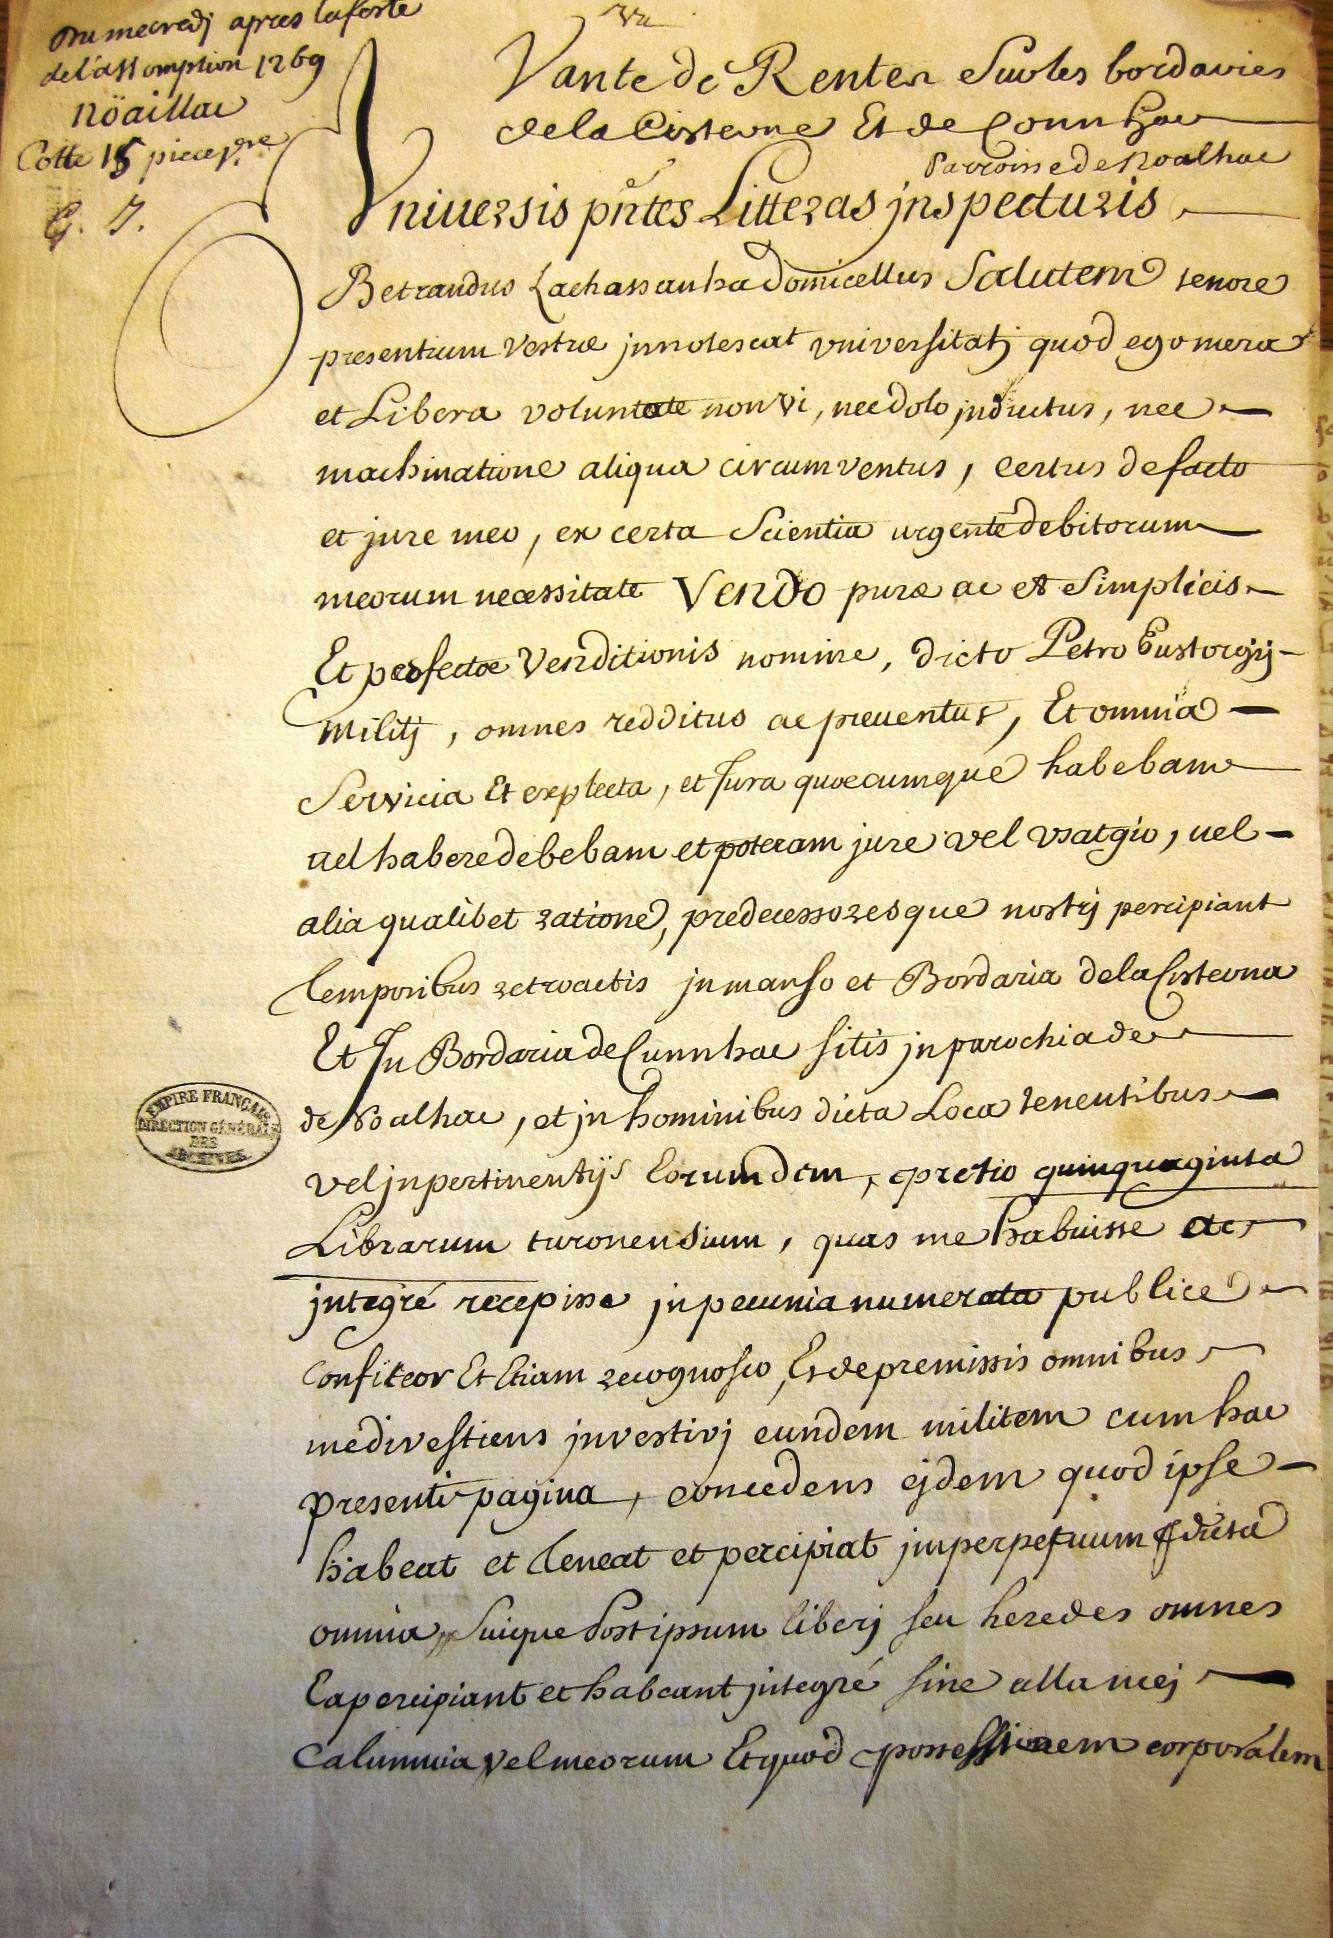 Du mecredj apres lafeste
de lassomption 1269
nöaillac
Cotte 15 piece 1.ere
G. 7.
Vu
Vante de Rentes Sur les bordaries
de la Cisterne Et de Connhac
Parroisse de Noalhac
Vniversis pñtes Litteras jnspecturis
Betrandus Lachassanha Domicellus Salutem tenore
presentium Vestræ jnnotescat vniversitatj quod ego mera
et Libera voluntate non vi, nec dolo jnductus, nec
machinatione aliqua circumventus, certus de facto
et jure meo, ex certa Scientia urgente debitorum
meorum necessitate Vendo puræ ac et Simplicis
Et perfectæ Venditionis nomine, dicto Petro Eustorgij
Militj, omnes redditus ac preventus, Et omnia
Servicia Et explecta, et Jura quæcumque habebam
vel habere debebam et poteram jure vel vsatgio, vel
alia qualibet ratione, predecessoresque nostrj percipiant
temporibus retroactis jn manso et Bordaria de la Cisterna
Et Jn Bordaria de Cunnhac sitis jn parochia de
de Noalhac, et jn hominibus dicta Loca tenentibus
vel jn pertinentijs Eorumdem, pretio quinquaginta
Librarum turonensium, quas me habuisse ac
jntegré recepisse jn pecunia numerata publice
Confiteor Et Etiam recognosco, Et de premissis omnibus
me divestiens jnvestivj eundem militem cum hac
presenti pagina, concedens ejdem quod ipse
habeat et teneat et percipiat jmperpetuum dicta
omnia, Suique Post ipsum liberj seu heredes omnes
Ea percipiant et habeant jntegré sine ulla mej
Calumnia vel meorum Et quod possessionem corporalem
EMPIRE FRANÇAIS
DIRECTION GÉNÉRALE
DES
ARCHIVES